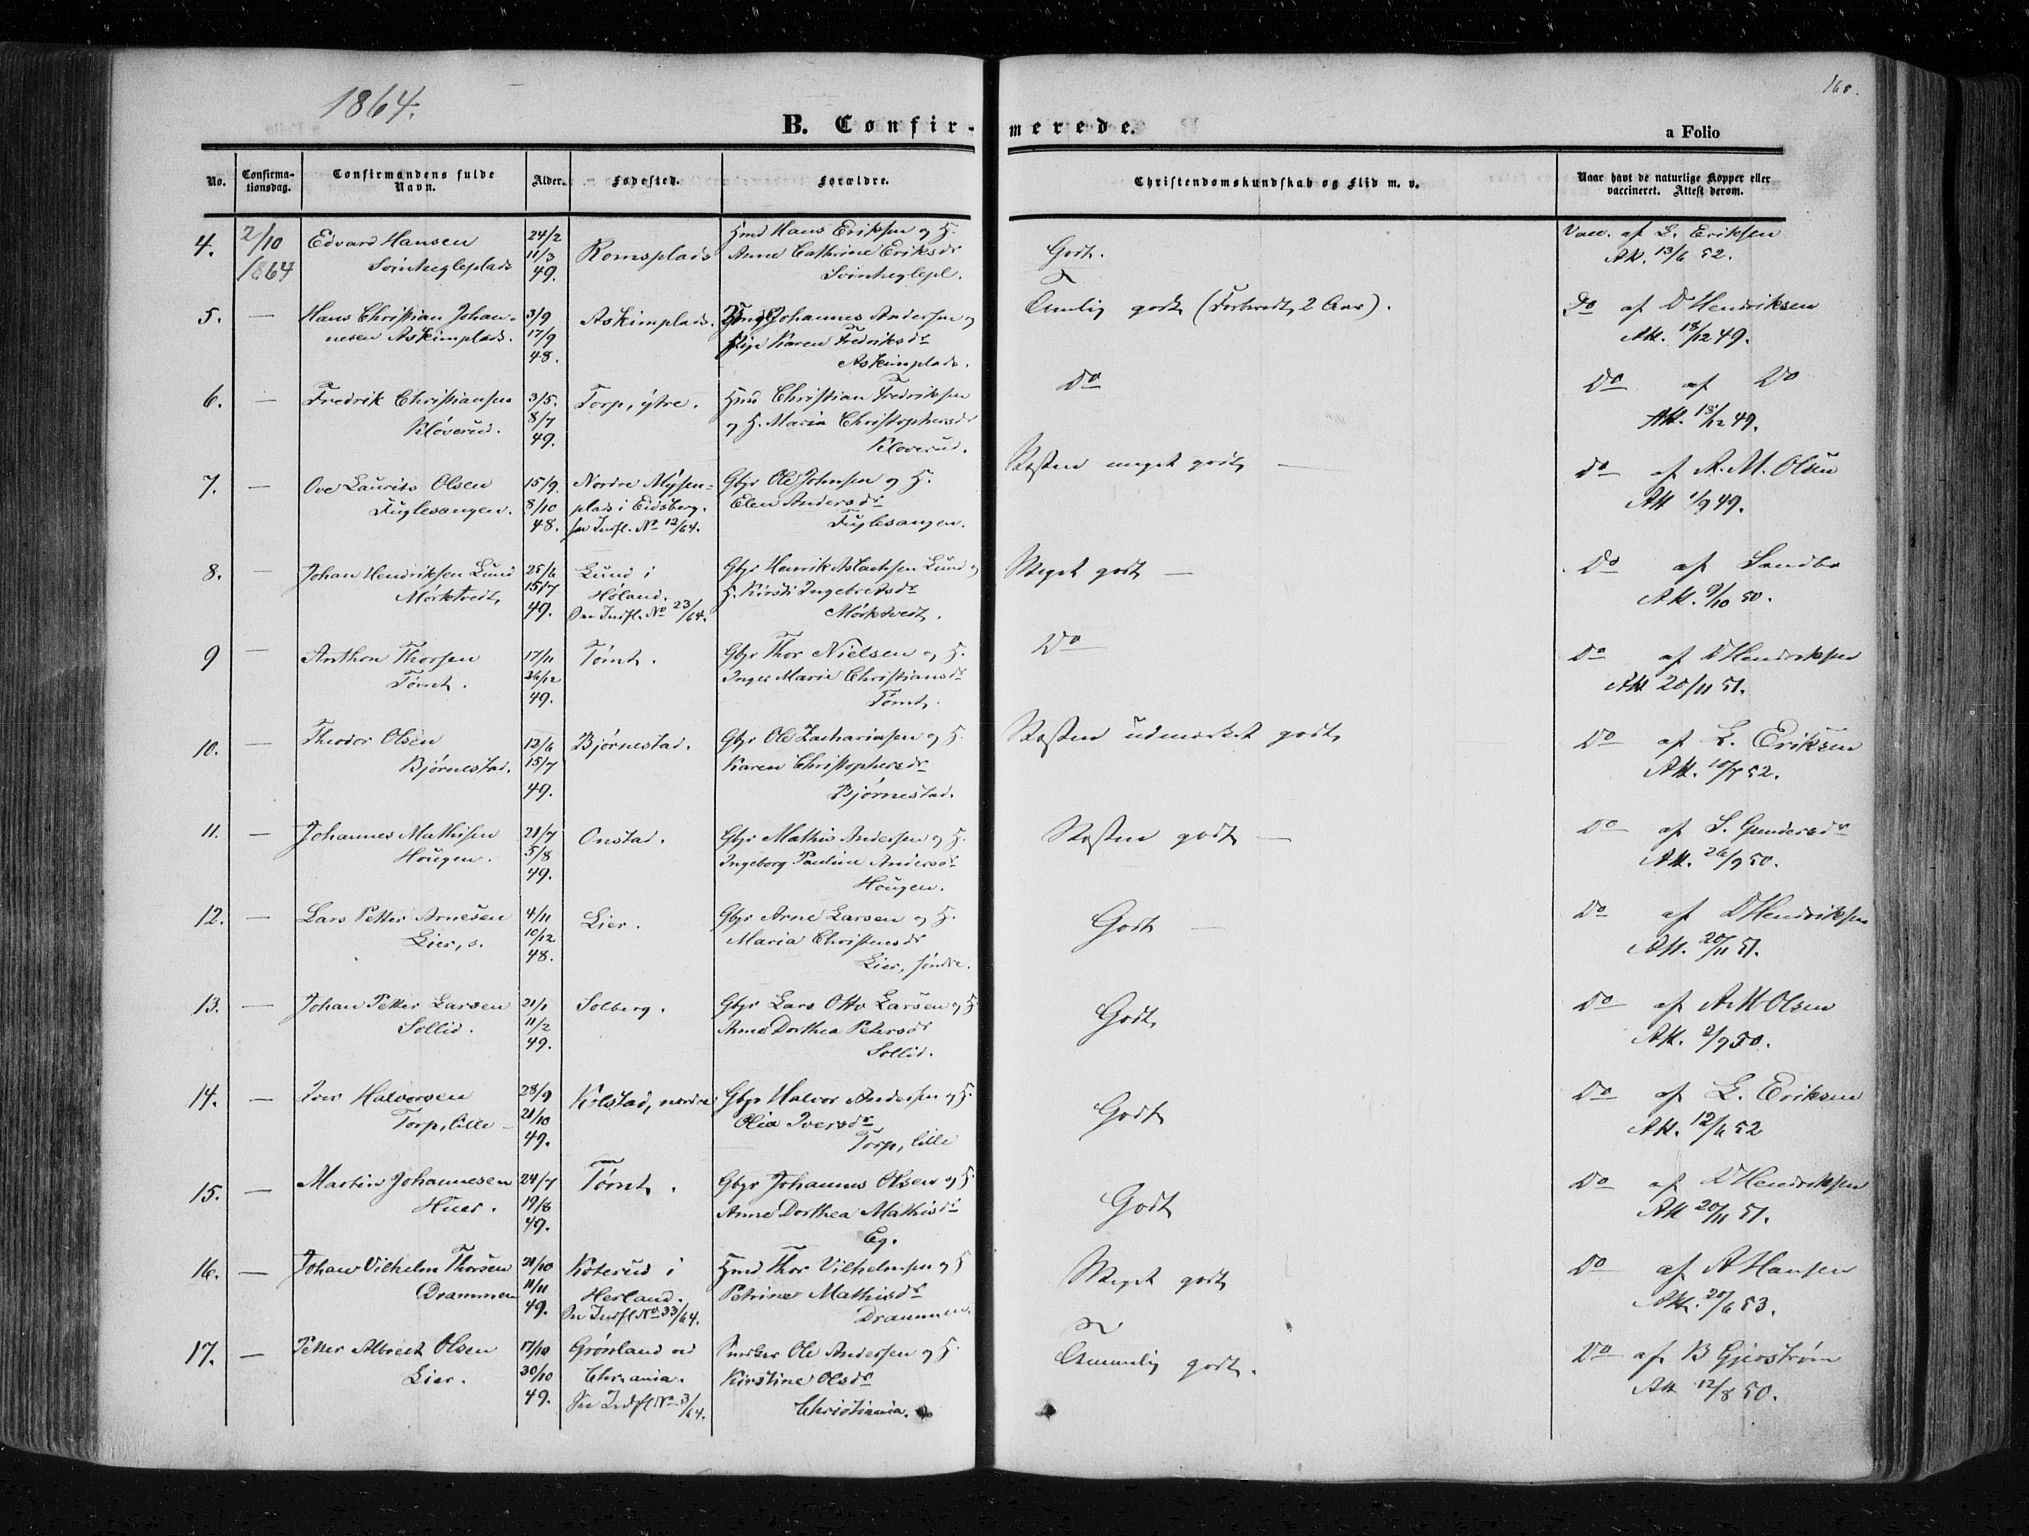 1864.
160.
B. Confir-merede.
a Folio
No.
Confirma-
tionsdag.
Confirmandens fulde
Navn.
Alder.
Fødested.
Forældre.
Christendomskundskab og Flid m. v.
Naar havt de naturlige Kopper eller
vaccineret. Attest derom.
4. 2/10 Edvard Hansen 24/2 Romsplads Hmd Hans Eriksen og H. Godt. Vacc. af L. Eriksen
1864 Svinhegleplads 11/3 Anne Cathrine Eriksdr Att. 13/6 52.
49. Svinheglepl.
5. — Hans Christian Johan- 3/9 Askimplads. Johannes Andersen og Temlig godt (Forberedt 2 Aar). Do af D Hendriksen
nesen Askimplads. 17/9 Pige Karen Fredriksdr Att. 18/12 49.
48. Askimplads.
6. — Fredrik Christiansen 3/5. Torp, ytre. Hmd Christian Fredriksen Do Do af Do
Kløverud. 8/7 og H. Maria Christophersdr Att. 18/12 49.
49. Kløverud.
7. — Ove Laurits Olsen 15/9. Nordre Mysen- Gbr Ole Johnsen og H. Næsten meget godt — Do af A. M. Olsen
Fuglesangen. 8/10 plads i Eidsberg. Elen Andersdr Att 1/9 49.
48. se Indfl. No 12/64. Fuglesangen.
8. — Johan Hendriksen Lund 25/6 Lund i Gbr Henrik Aslachsen Lund og Meget godt — Do af Sandbo
Mørktvedt, 15/7 Høland. H. Kirsti Ingebretsdr Att. 9/10 50.
49. Se Indfl. No 23/64. Mørktvedt.
9 — Anthon Thorsen 17/11 Tømt. Gbr Thor Nielsen og H. Do Do af D Hendriksen
Tømt. 26/12 Inger Marie Christiansdr Att 20/11 51.
49. Tømt.
10. — Theodor Olsen 12/6 Bjørnestad. Gbr Ole Zachariasen og H. Næsten udmærket godt, Do af L. Eriksen
Bjørnestad. 15/7 Karen Christophersdr Att. 10/7 52.
49. Bjørnestad.
11. — Johannes Mathisen 21/7 Onstad. Gbr Mathis Andersen og H. Næsten godt — Do af S. Gundersdr
Hougen. 5/8 Ingeborg Pauline Andersdr Att. 26/9 50.
49. Hougen.
12. — Lars Petter Arnesen 4/11 Lier. Gbr Arne Larsen og H. Godt — Do af D Hendriksen
Lier, s. 10/12 Maria Christensdr Att. 20/11 51.
48. Lier, søndre.
13. — Johan Petter Larsen 21/1 Solberg. Gbr Lars Otto Larsen og H Godt, Do af A M Olsen
Sollid. 11/2 Anne Dorthea Petersdr Att. 2/9 50.
49. Sollid.
14. — Iver Halvorsen 28/9 Kolstad, nordre Gbr Halvor Andersen og H. Godt Do af L. Eriksen
Torp, lille — 21/10 Olia Iversdr Att. 12/6 52
49. Torp, lille
15. — Martin Johannesen 24/7 Tømt. Gbr Johannes Olsen og H. Godt Do af D Hendriksen
Huer. 19/8 Anne Dorthea Mathisdr Att 20/11 51.
49. Eg.
16. — Johan Vilhelm Thorsen 21/10 Koterud i Hmd Thor Vilhelmsen og H Meget godt, Do af A Hansen
Drammen 11/11 Herland. Petrine Mathisdr Att. 20/6 53.
49. Se Indfl No 33/64. Drammen.
17. — Petter Albrect Olsen 17/10 Grønland ved Ole Andersen og H. Temmelig godt. Do af B Gjerstrøm
Lier. 30/10 Chr.ania. Kirstine Olsdr Att 12/8 50.
49. Se Indfl No 3/64. Christiania.